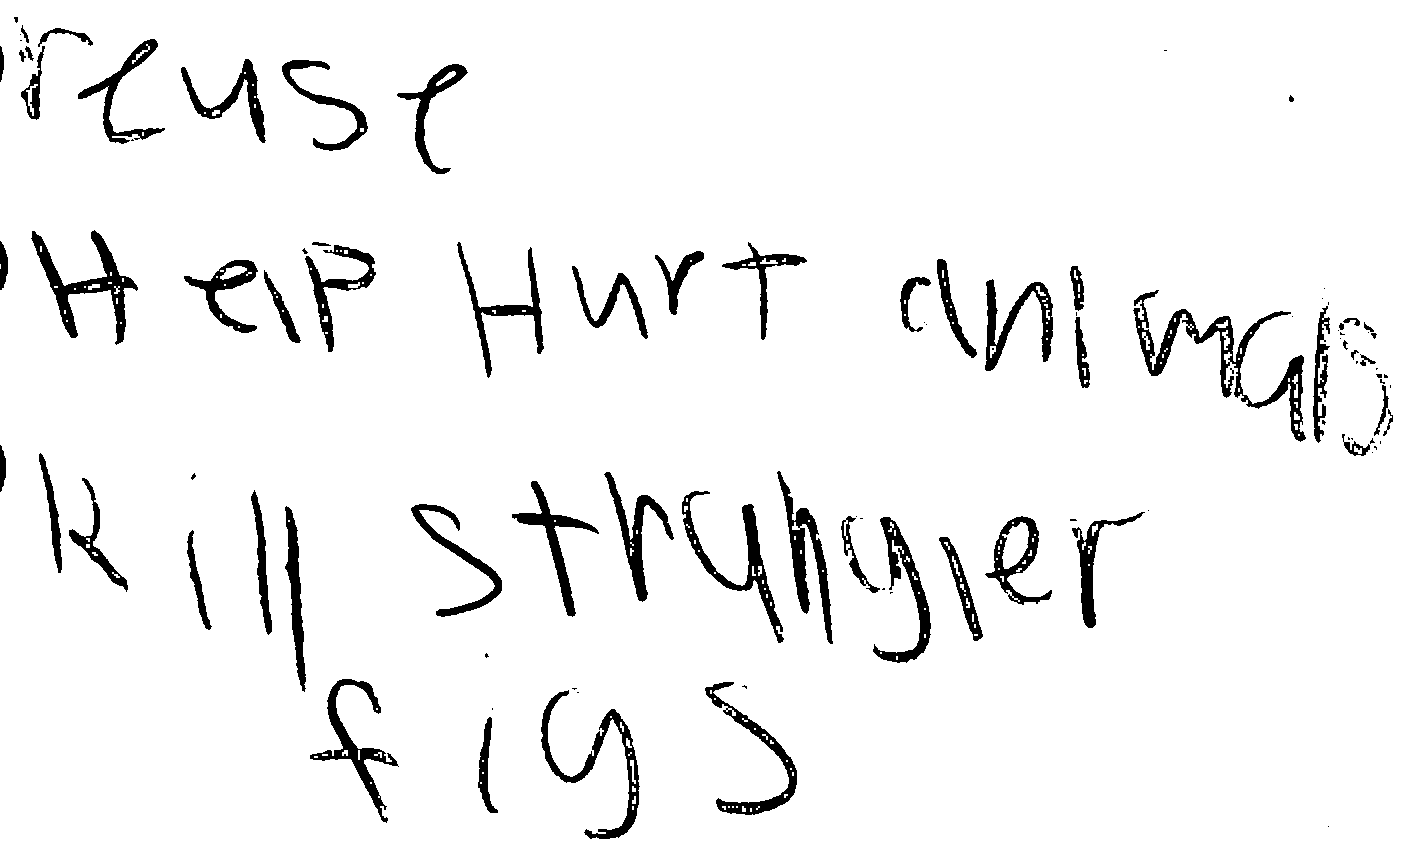 reuse
Help Hurt animals
kill strangler
figs